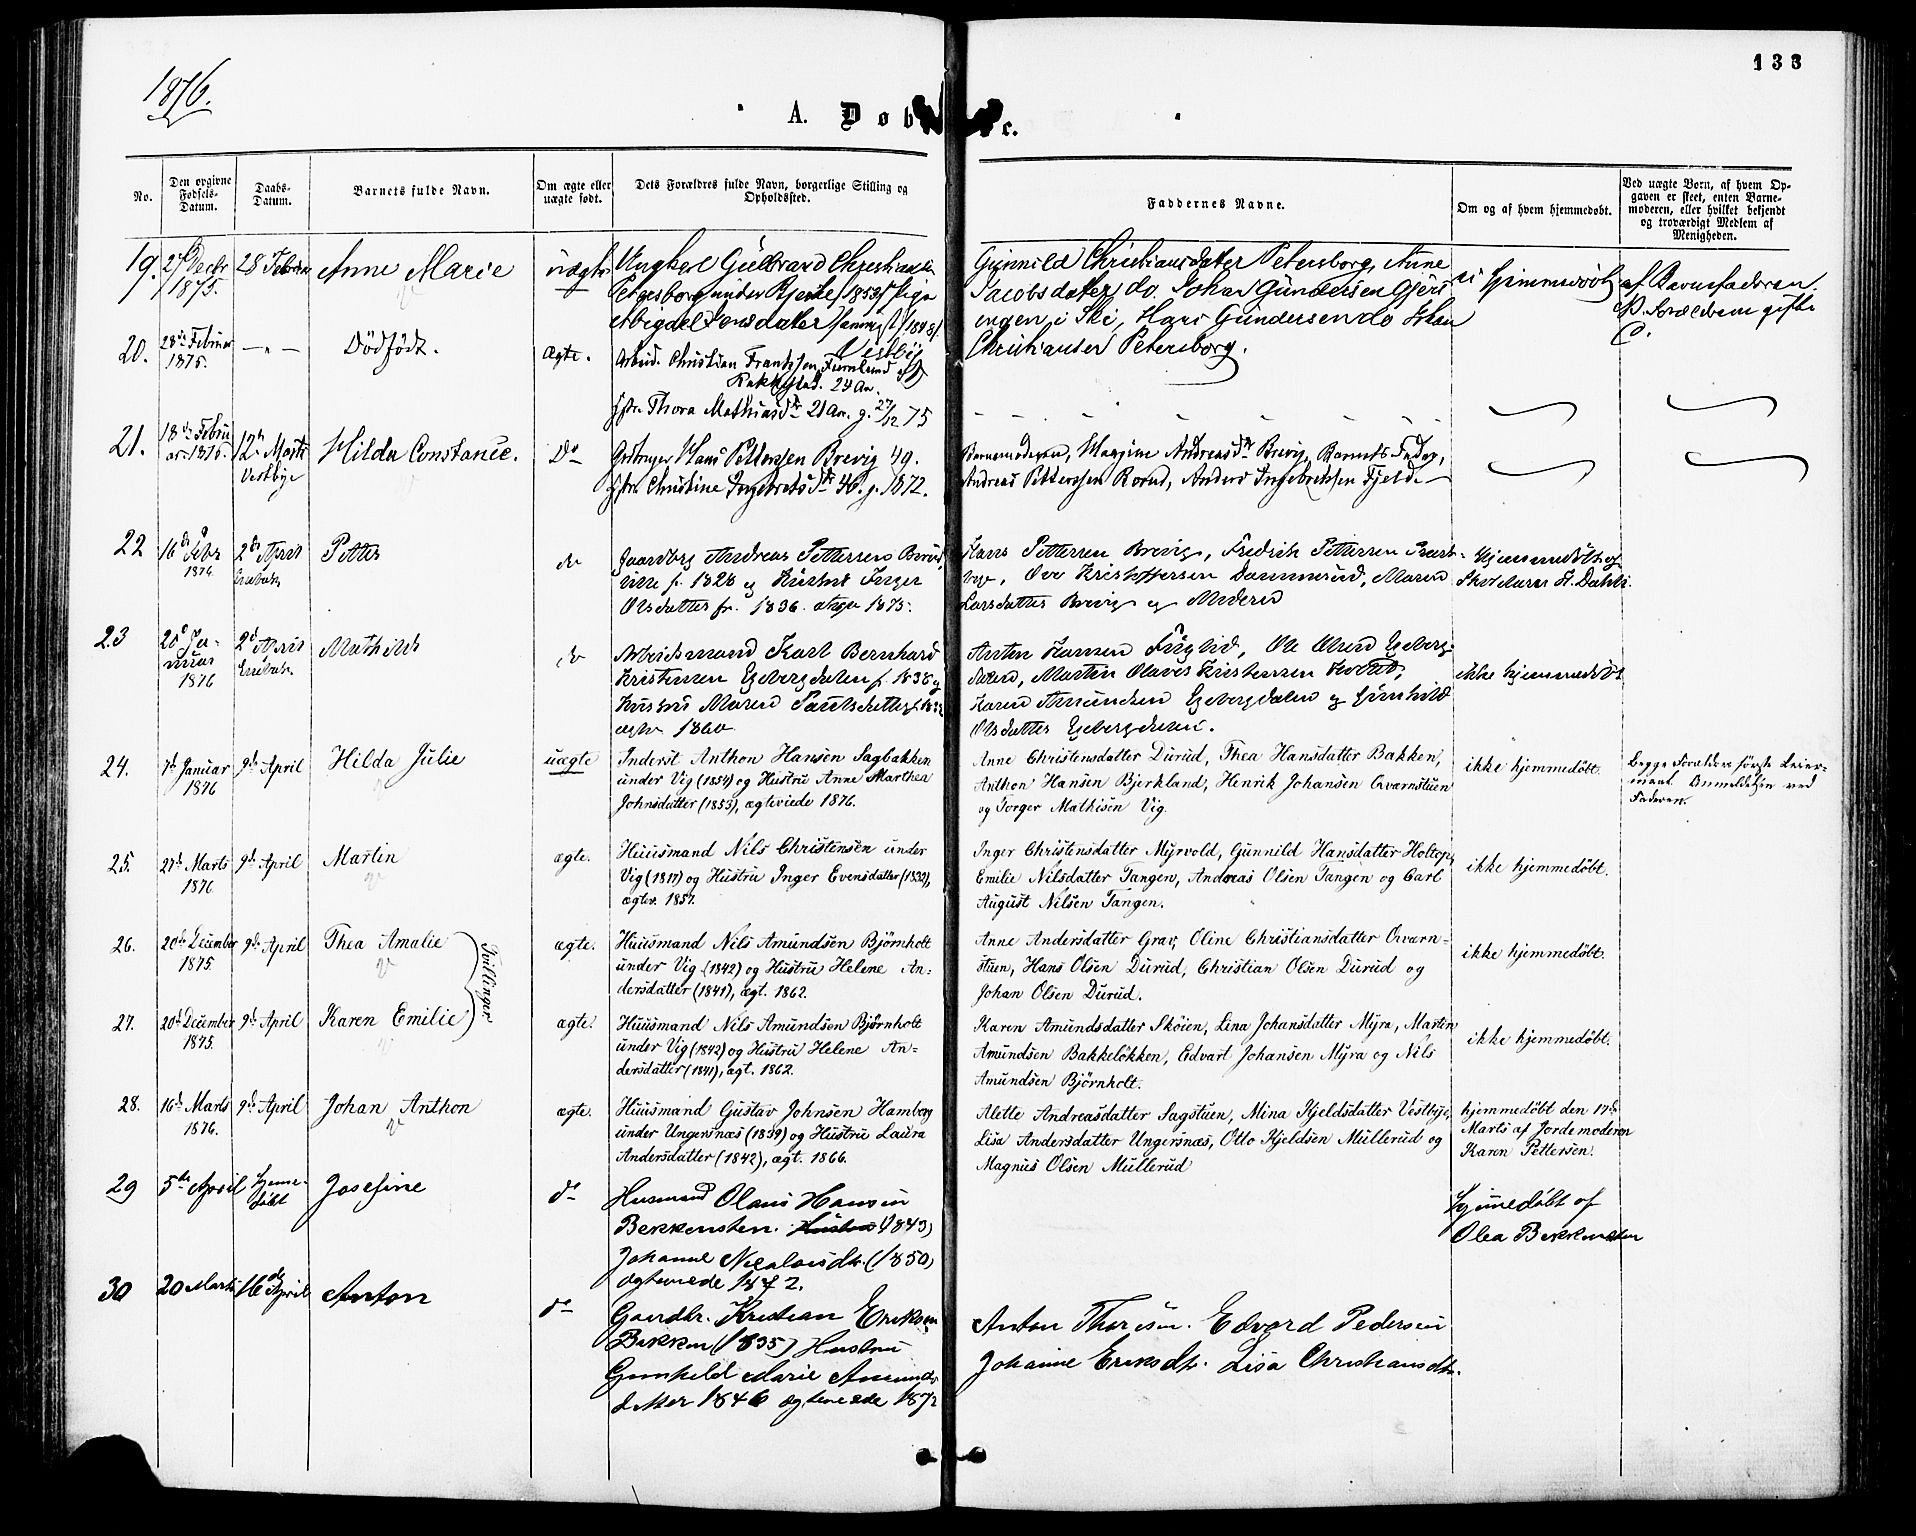 1876.
133
A. Døbte.
No.
Den opgivne Fødsels-Datum.
Daabs-Datum.
Barnets fulde Navn.
Om ægte eller uægte født.
Dets Forældres fulde Navn, borgerlige Stilling og Opholdssted.
Faddernes Navne.
Om og af hvem hjemmedøbt.
Ved uægte Børn, af hvem Opgaven er skeet, enten Barnemoderen, eller hvilket bekjendt og troværdigt Medlem af Menigheden.
19. 27 Decbr 1875. 28 Februar Anne Marie uægte
Ungkarl Gulbrand Christiansen
Petersborg under Bjerke (1853) Pige
Abigael Jensdatter samme St (1848)
Vestby
Gunnild Christiansdater Petersborg, Anne
Jacobsdater do. Johan Gundersen Gjers
ungen i Ski, Hans Gundersen do Johan
Christiansen Petersborg.
ei hjemmedøbt
af Barnefaderen.
Forældrene gifte
20. 28de Februar 1875. — " — Dödfödt. Ægte.
Arbeid. Christian Frantzsen
24 Aar.
Hstr. Thora Mathiasdtr 21 Aar. g. 27/12 75
21. 18de Februar 1876. 12te Marts Vestbye Hilda Constance. Do
Grdbruger Hans Pettersen Brevig 49.
Hstr. Christine Ingebretsdtr 46. g. 1872.
Barnemoderen, Maxime Andreasdtr Brevig, Barnets Fader,
Andreas Pettersen Rorud, Anders Ingebretsen Fjeld.
22 16de Febr 1876 2den April Petter do
Gaardbrg Andreas Pettersen Brevig
f. 1828 og Hustru Inger
Olsdatter fr. 1836. ægtv 1875.
Hans Pettersen Brevig, Fredrik Pettersen
Ove Kristoffersen Dammerud, Maren
Larsdatter Brevig og Moderen
Hjemmedøbt af
23 20d Januar 1876 2d April Mathilde do
Arbeidsmand Karl Bernhard
Kristensen Egebergdalen f. 1838 og
Hustru Maren Paulsdatter
ægtv 1860
Anton Hansen Fuglid, Ole Olsen Egeberg-
dalen, Martin Olaves Kristensen
Karen Amundsen Egebergdalen og Gunhild
Olsdatter Egebergdalen.
ikke hjemmedøbt
24. 7de Januar 1876 9de April Hilda Julie uægte
Inderst Anthon Hansen Sagbakken
under Vig (1854) og Hustru Anne Marthea
Johnsdatter (1853), ægteviede 1876.
Anne Christensdatter Durud, Thea Hansdatter Bakken,
Anthon Hansen Bjerkland, Henrik Johansen Qværnstuen
og Torger Mathisen Vig.
ikke hjemmedøbt.
Begge Forældres første Leier-
maal. Anmeldelsen ved
Faderen.
25. 27de Marts 1876 9de April Martin ægte.
Huusmand Nils Christensen under
Vig (1817) og Hustru Inger Evensdatter (1832),
ægtev. 1857.
Inger Christensdatter Myrvold, Gunnild Hansdatter Holtop,
Emilie Nilsdatter Tangen, Andreas Olsen Tangen og Carl
August Nilsen Tangen.
ikke hjemmedøbt.
26. 20de December 1875. 9de April Thea Amalie ægte.
Tvillinger
Huusmand Nils Amundsen Björnholt
under Vig (1842) og Hustru Helene An-
dersdatter (1841), ægt. 1862.
Anne Andersdatter Grav, Oline Christiansdatter Qværn-
stuen, Hans Olsen Durud, Christian Olsen Durud og
Johan Olsen Durud.
ikke hjemmedøbt.
27. 20de December 1875. 9de April Karen Emilie ægte.
Huusmand Nils Amundsen Björnholt
under Vig (1842) og Hustru Helene An-
dersdatter (1841), ægt. 1862.
Karen Amundsdatter Sköien, Lina Johansdatter Myra, Martin
Amundsen Bakkelökken, Edvart Johansen Myra og Nils
Amundsen Björnholt.
ikke hjemmedøbt.
28. 16de Marts 1876. 9de April Johan Anthon ægte.
Huusmand Gustav Johnsen Hamberg
under Ungersnæs (1839) og Hustru Laura
Andersdatter (1842), ægt. 1866.
Alette Andreasdatter Sagstuen, Mina Kjeldsdatter Vestbye,
Lisa Andersdatter Ungersnæs, Otto Kjeldsen Mullerud og
Magnus Olsen Mullerud
hjemmedøbt den 17de
Marts af Jordemoderen
Karen Pettersen.
29 5te April Hjemmedøbt Josefine do
Husmand Olaus Hansen
Bekkensten. Hustru (1843)
Johanne Nicolaisdtr. (1850)
ægteviede 1872.
Hjemedøbt af
Olea Bekkensten
30 20 Marts 16de April Anton do
Gaardbr. Kristian Eriksen
Bekken (1835) Hustru
Gunhild Marie Amunds
datter 1846 ægteviede 1872
Anton Thoresen. Edvard Pedersen
Johanne Eriksdtr. Lisa Christiansdtr.